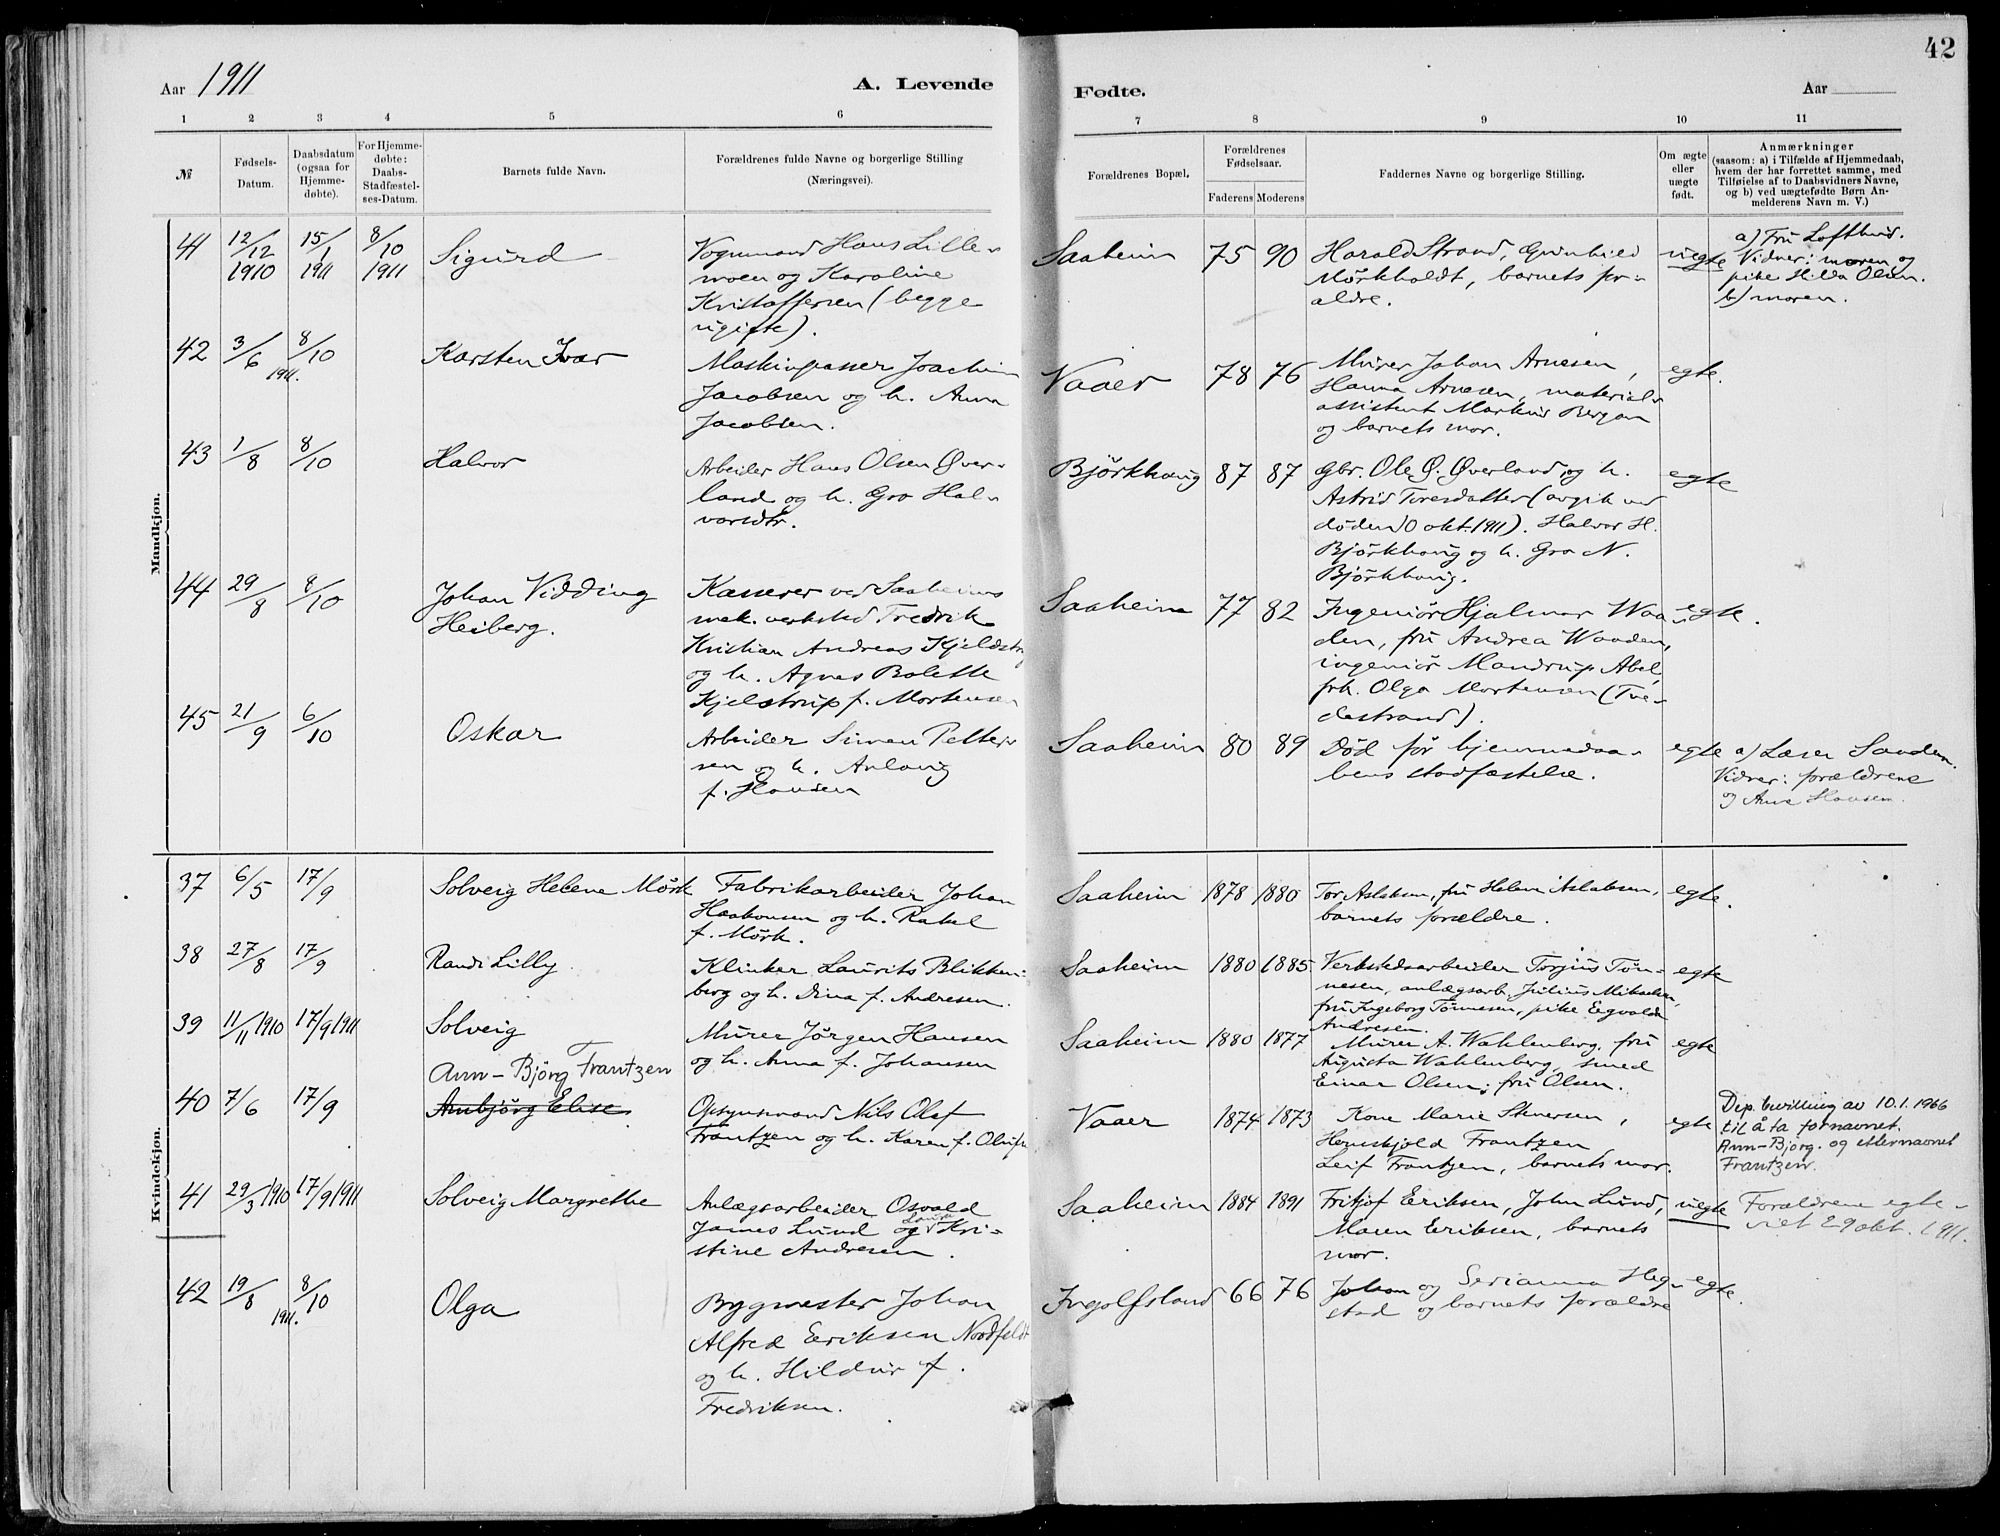 42
Aar 1911
A. Levende Fødte.
Aar
1 2 3 4 5 6 7 8 9 10 11
№
Fødsels-Datum.
Daabsdatum (ogsaa for Hjemmedøbte).
For Hjemmedøbte: Daabs-Stadfæstelses-Datum.
Barnets fulde Navn.
Forældrenes fulde Navne og borgerlige Stilling (Næringsvei).
Forældrenes Bopæl.
Forældrenes Fødselsaar.
Faderens Moderens
Faddernes Navne og borgerlige Stilling.
Om ægte eller uægte født.
Anmærkninger
(saasom: a) i Tilfælde af Hjemmedaab,
hvem der har forrettet samme, med
Tilføielse af to Daabsvidners Navne,
og b) ved uægtefødte Børn An-
melderens Navn m. V.)
Mandkjøn.
41 12/12 1910 15/1 1911 8/10 1911 Sigurd
Vognmand Hans Lille-
moen og Karoline
Kristoffersen (begge
ugifte).
Saaheim 75 90
Harald Strand, Gunhild
Mørkholdt, barnets for-
ældre.
uegte
a) Fru Lofthus.
Vidner: moren og
pike Hilda Olsen.
b) moren.
42 3/6 8/10 1911. Karsten Ivar
Maskinpasser Joachim
Jacobsen og h. Anna
Jacobsen.
Vaaer 78 76
Murer Johan Arnesen,
Hanna Arnesen, material-
assistent Markus Bergan
og barnets mor.
egte.
43 1/8 8/10 Halvor
Arbeider Hans Olsen Øver-
land og h. Gro Hal-
vorsdtr.
Bjørkhaug 87 87
Gbr. Ole Ø. Øverland og h.
Astrid Toresdatter (avgik ved
døden 10 okt. 1911). Halvor H.
Bjørkhaug og h. Gro N.
Bjørkhaug.
egte
44 29/8 8/10 Johan Vidding
Heiberg.
Kasserer ved Saaheims
mek. verksted Fredrik
Kristian Andreas Kjeldstrup
og h. Agnes Bolette
Kjelstrup f. Mortensen
Saaheim 77 82
Ingeniør Hjalmar Waa-
den, fru Andrea Waaden,
ingeniør Mandrup Abel,
frk. Olga Mortensen (Tve-
destrand).
egte.
45 21/9 6/10 Oskar
Arbeider Simen Petter-
sen og h. Anlaug
f. Hansen
Saaheim 80 89
Død før hjemmedaa-
bens stadfæstelse.
egte
a) Læser Sanden.
Vidner: forældrene
og Ana Hansen.
Kvindekjøn.
37 6/5 17/9 Solveig Helene Mørk
Fabrikarbeider Johan
Haakonsen og h. Rakel
f. Mørk.
Saaheim 1878 1880
Tor Aslaksen, fru Helene Aslaksen,
barnets forældre.
egte.
38 27/8 17/9 Randi Lilly
Klinker Laurits Blikken-
berg og h. Dina f. Andresen.
Saaheim 1880 1885
Verkstedsarbeider Torjus Tøn-
nesen, anlægsarb. Julius Mikaelsen,
fru Ingeborg Tønnesen, pike Eigvalda
Andresen.
egte
39 11/11 1910 17/9 1911 Solveig
Murer Jørgen Hansen
og h. Anna f. Johansen
Saaheim 1880 1877
Murer A. Wahlenberg, fru
Augusta Wahlenberg, smed
Einar Olsen, fru Olsen.
egte
Ann-Bjørg Frantzen
40 7/6 17/9 Annbjørg Elise
Opsynsmand Nils Olaf
Frantzen og h. Karen f. Olufsen
Vaaer 1874 1873
Kone Marie Stenersen,
Hemskjold Frantzen
Leif Frantzen, barnets mor.
egte
Dep. bevilling av 10.1.1966
til å ta fornavnet
Ann-Bjørg. og etternavnet
Frantzen.
41 29/3 1910 17/9 1911 Solveig Margrethe
Anlægsarbeider Osvald
James Lund og Laura Kri-
stine Andresen.
Saaheim 1884 1891
Fritjof Eriksen, John Lund,
Maren Eriksen, barnets
mor.
uegte
Forældrene egte-
viet 29 okt. 1911.
42 19/8 8/10 1911. Olga
Bygmester Johan
Alfred Eriksen Nordfeldt
og h. Hildur f.
Fredriksen.
Ingolfsland 66 76
Johan og Serianna Heg-
stad og barnets forældre
egte.